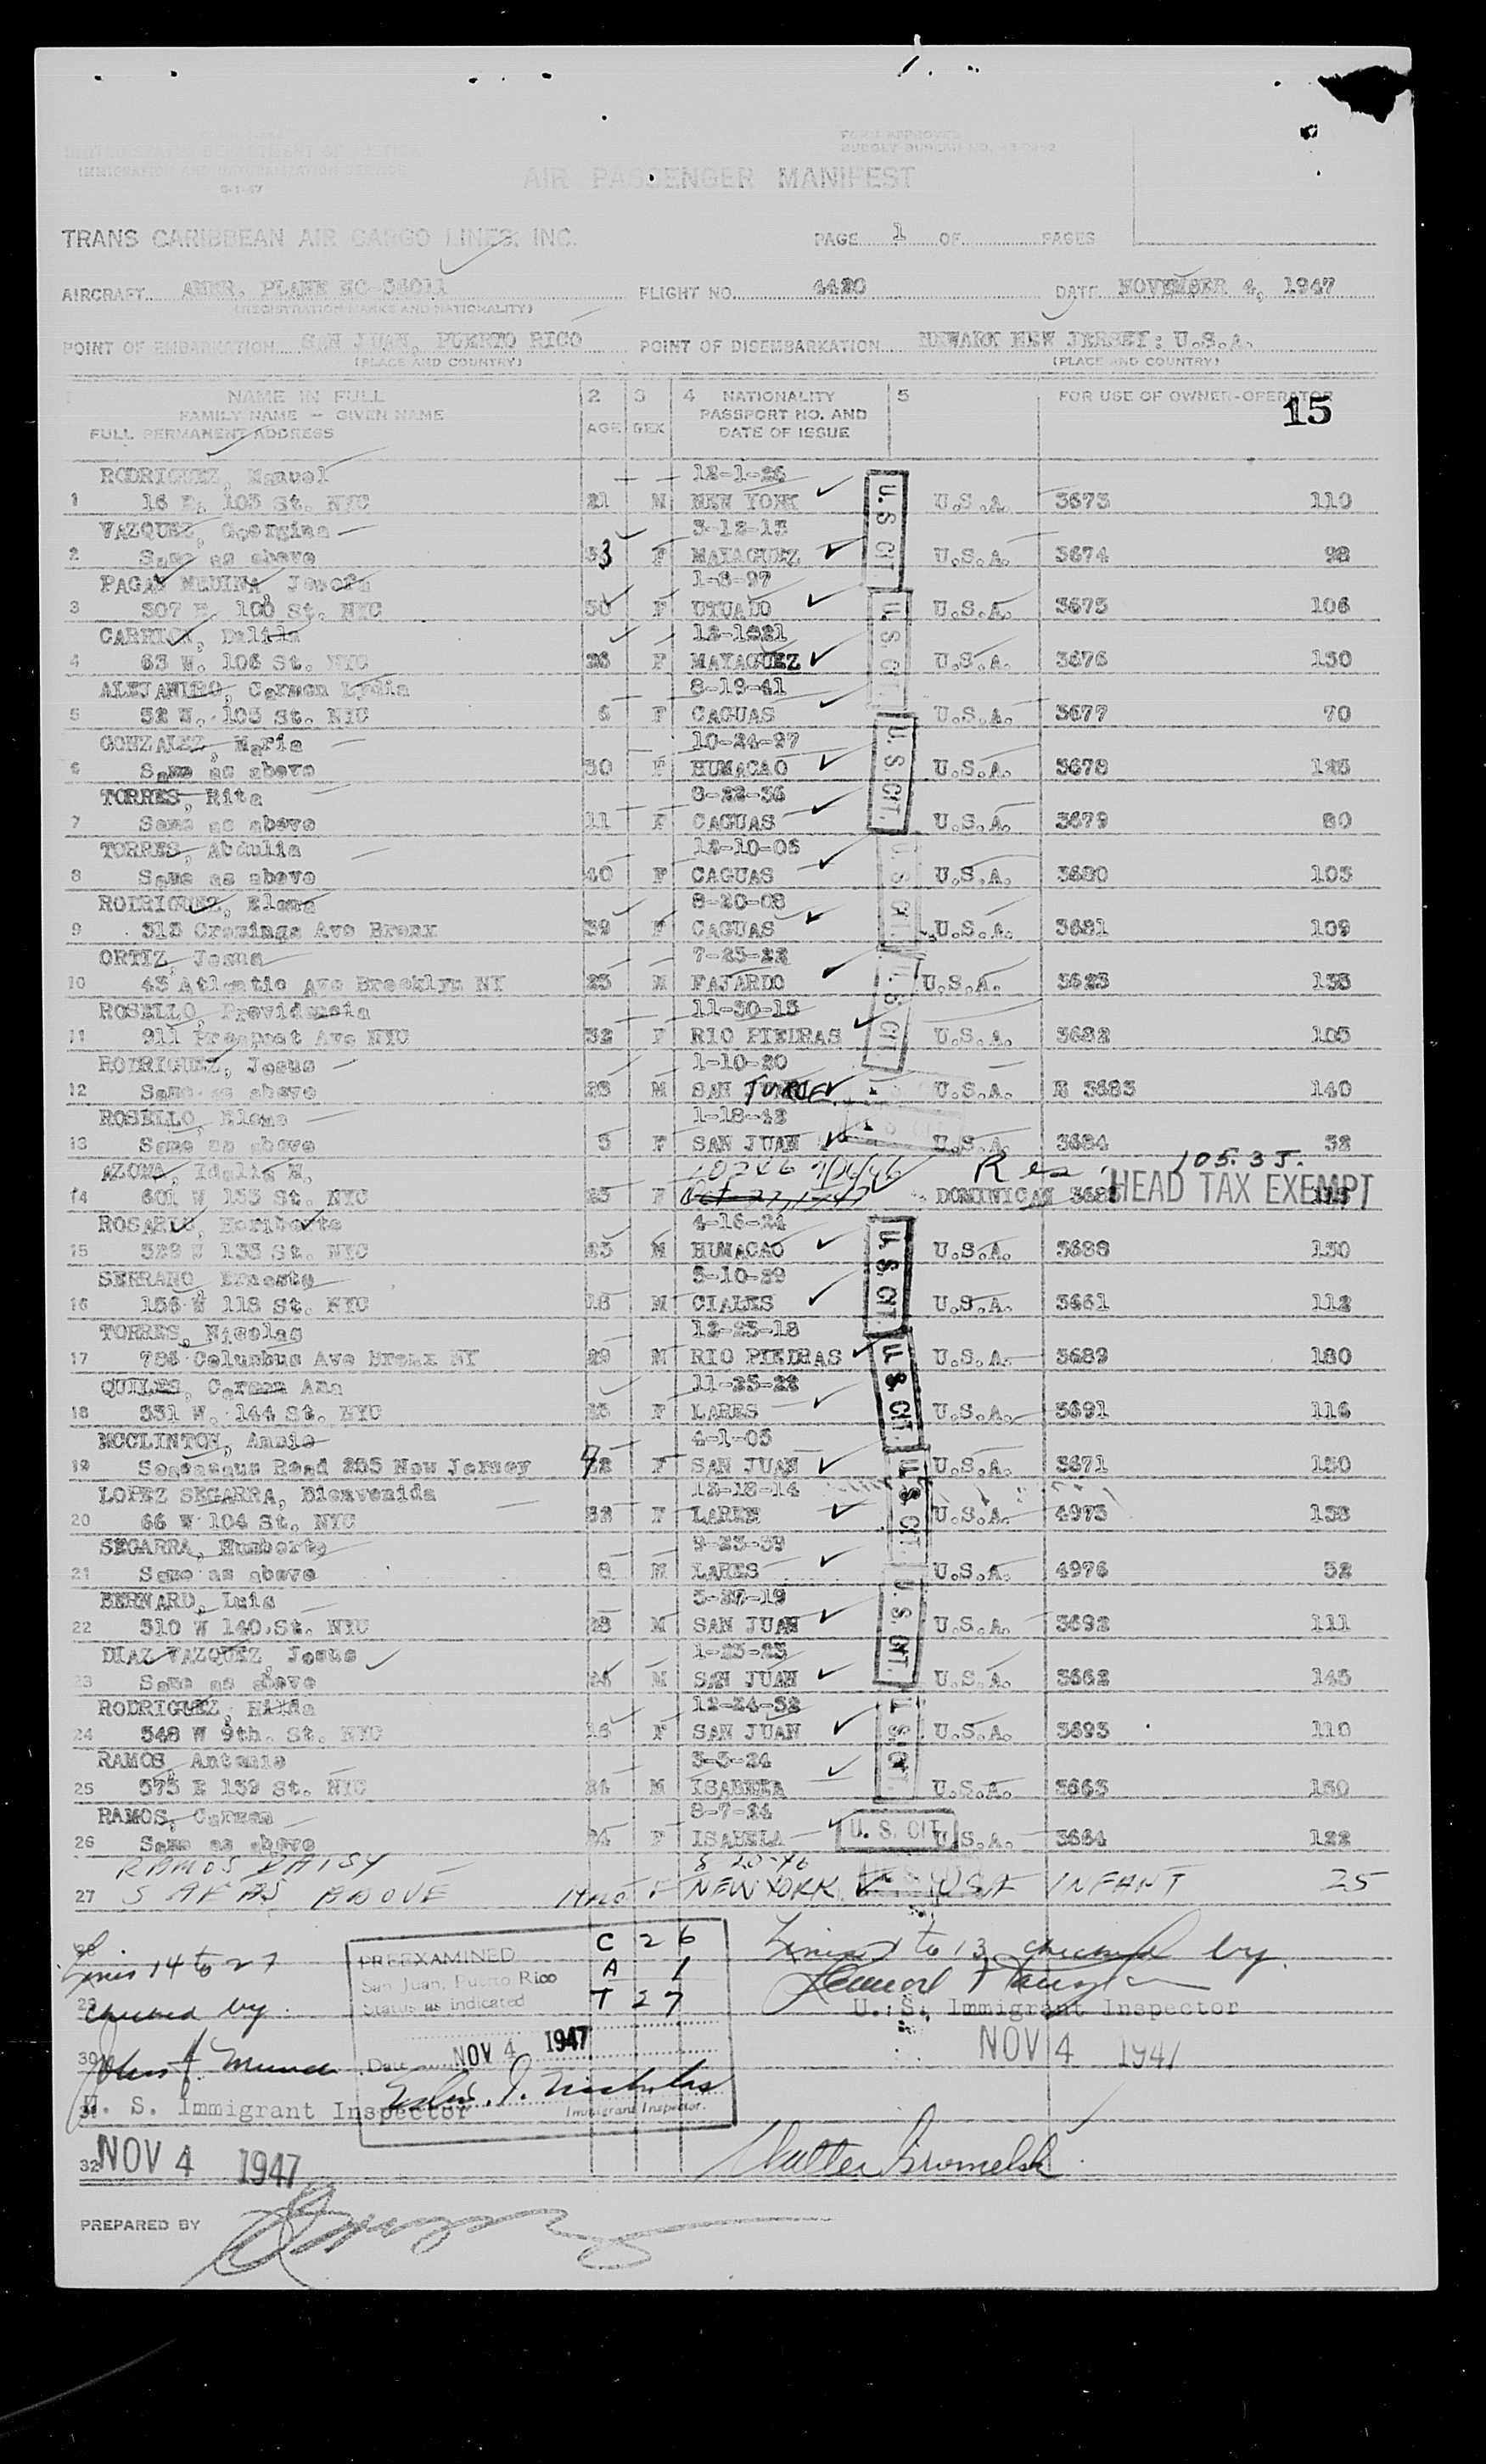 UNITED STATES DEPARTMENT OF JUSTICE
IMMIGRATION AND NATURALIZATION SERVICE
FORM APPROVED
AIR PASSENGER MANIFEST
TRANS CARIBBEAN AIR CARGO LINES, INC.
PAGE 1 OF PAGES
AIRCRAFT AMER. PLANE NC-34011 FLIGHT NO. 4420 DATE NOVEMBER 4, 1947
(REGISTRATION MARKS AND NATIONALITY)
POINT OF EMBARKATION SAN JUAN, PUERTO RICO POINT OF DISEMBARKATION NEWARK NEW JERSEY: U.S.A.
(PLACE AND COUNTRY) (PLACE AND COUNTRY)
NAME IN FULL 2 3 4 NATIONALITY 5 FOR USE OF OWNER-OPERATOR
FAMILY NAME — GIVEN NAME AGE SEX PASSPORT NO. AND 15
FULL PERMANENT ADDRESS DATE OF ISSUE
RODRIGUEZ, Manuel 12-1-26
1 16 E. 103 St. NYC 21 M NEW YORK U.S. CIT. U.S.A. 3673 110
VAZQUEZ, Georgina 3-12-13
2 Same as above F MAYAGUEZ U.S.A. 3674 98
PAGAN MEDINA, Josefa 1-8-97
3 307 E. 100 St. NYC 50 F UTUADO U.S. CIT. U.S.A. 3675 106
CARRION, Dalila 12-1921
4 63 W. 106 St. NYC 26 F MAYAGUEZ U.S.A. 3676 130
ALEJANDRO, Carmen Lydia 8-19-41
5 52 W. 103 St. NYC 6 F CAGUAS U.S.A. 3677 70
GONZALEZ, Maria 10-24-97
6 Same as above 50 F HUMACAO U.S. CIT. U.S.A. 3678 125
TORRES, Rita 8-22-36
7 Same as above 11 F CAGUAS U.S.A. 3679 80
TORRES, Abdulia 12-10-06
8 Same as above 40 F CAGUAS U.S. CIT. U.S.A. 3680 105
RODRIGUEZ, Elena 8-20-08
9 Ave Bronx 39 F CAGUAS U.S.A. 3681 109
ORTIZ, Jesus 7-25-22
10 43 Atlantic Ave Brooklyn NY 25 M FAJARDO U.S. CIT. U.S.A. 3623 135
ROSELLO, Providencia 11-30-15
11 911 Prospect Ave NYC 32 F RIO PIEDRAS U.S.A. 3682 105
RODRIGUEZ, Jesus 1-10-20
12 Same as above M SAN U.S.A. 3683 140
ROSELLO, Elena 1-18-42
13 Same as above 5 F SAN JUAN U.S.A. 3684 52
Idalia M. Res. 105.3 J.
14 601 W 135 St. NYC 25 F DOMINICAN HEAD TAX EXEMPT
ROSARIO, Heriberto 4-16-24
15 529 W 133 St. NYC 23 M HUMACAO U.S. CIT. U.S.A. 3688 130
SERRANO, Ernesto 3-10-29
16 156 W 118 St. NYC 18 M CIALES U.S.A. 3661 112
TORRES, Nicolas 12-23-18
17 786 Columbus Ave Bronx NY 29 M RIO PIEDRAS U.S. CIT. U.S.A. 3689 180
QUILES, Carmen Ana 11-25-22
18 531 W. 144 St. NYC 25 F LARES U.S.A. 3691 116
MCCLINTON, Annie 4-1-05
19 Road 285 New Jersey 42 F SAN JUAN U.S. CIT. U.S.A. 3671 150
LOPEZ SEGARRA, Bienvenida 12-18-14
20 66 W 104 St. NYC 32 F LARES U.S.A. 4975 138
SEGARRA, Humberto 9-23-39
21 Same as above 8 M LARES U.S.A. 4976 52
BERNARD, Luis 5-27-19
22 510 W 140 St. NYC 28 M SAN JUAN U.S. CIT. U.S.A. 3692 111
DIAZ VAZQUEZ, Jesus 1-23-23
23 Same as above 24 M SAN JUAN U.S.A. 3662 145
RODRIGUEZ, 12-24-32
24 548 W 9th. St. NYC F SAN JUAN U.S. CIT. U.S.A. 3693 110
RAMOS, Antonio 3-3-24
25 573 E 139 St. NYC 24 M ISABELA U.S.A. 3663 130
RAMOS, Carmen 8-7-24
26 Same as above 24 F ISABELA U.S. CIT. U.S.A. 3664 122
RAMOS DAISY 8 20-46
27 SAME AS ABOVE F NEW YORK USA INFANT 25
Lines 14 to 27
checked by
U. S. Immigrant Inspector
NOV 4 1947
PREEXAMINED C 26
San Juan, Puerto Rico A 1
Status as indicated T 27
Date NOV 4 1947
Immigrant Inspector.
Lines 1 to 13 checked by
U.S. Immigrant Inspector
NOV 4 1947
32
PREPARED BY